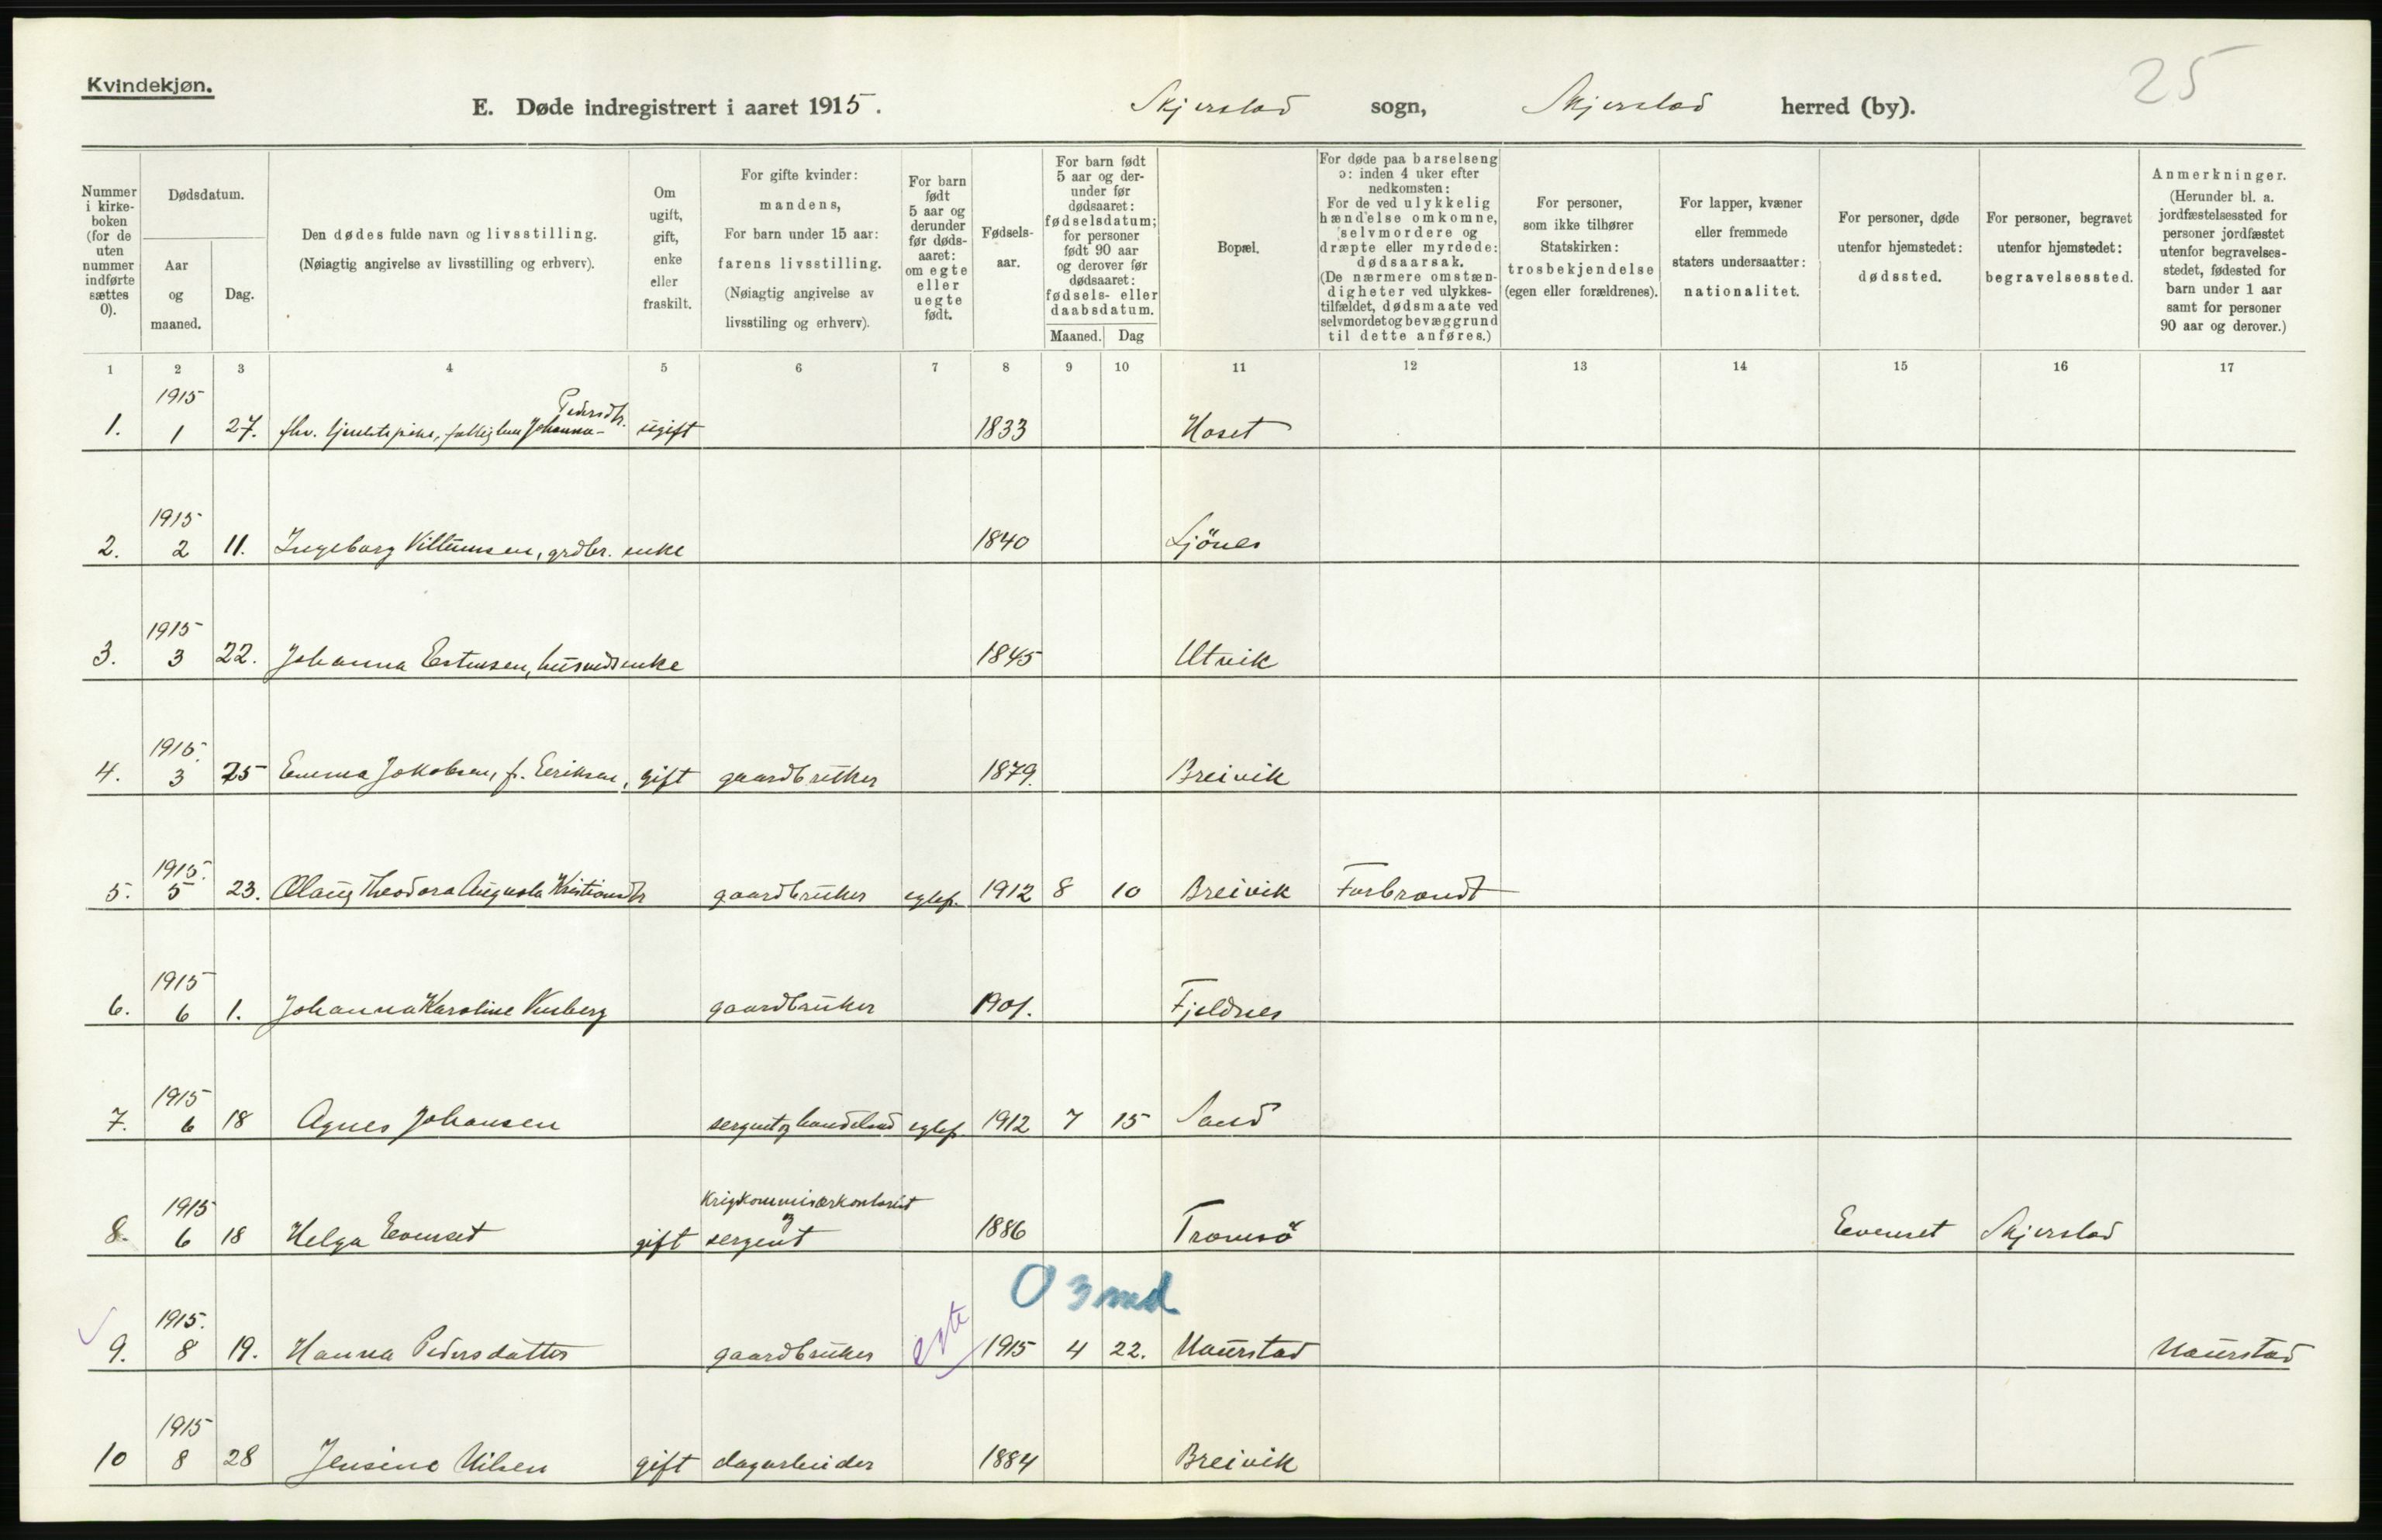 Kvindekjøn.
25
E. Døde indregistrert i aaret 1915. Skjerstad sogn, Skjerstad herred (by).
Nummer i kirke- boken (for de uten nummer indførte sættes 0).
Dødsdatum.
Aar og maaned.
Dag.
Den dødes fulde navn og livsstilling.
(Nøiagtig angivelse av livsstilling og erhverv).
Om ugift, gift, enke eller fraskilt.
For gifte kvinder: mandens, For barn under 15 aar: farens livsstilling. (Nøiagtig angivelse av livsstiling og erhverv).
For barn født 5 aar og derunder før døds- aaret: om egte eller uegte født.
Fødsels- aar.
For barn født 5 aar og der- under før dødsaaret: fødselsdatum; for personer født 90 aar og derover før dødsaaret: fødsels- eller daabsdatum.
Maaned. Dag
Bopæl.
For døde paa barselseng ɔ: inden 4 uker efter nedkomsten: For de ved ulykkelig hændelse omkomne, selvmordere og dræpte eller myrdede: dødsaarsak. (De nærmere omstæn- digheter ved ulykkes- tilfældet, dødsmaate ved selvmordet og bevæggrund til dette anføres.)
For personer, som ikke tilhører Statskirken: trosbekjendelse (egen eller forældrenes).
For lapper, kvæner eller fremmede staters undersaatter: nationalitet.
For personer, døde utenfor hjemstedet: dødssted.
For personer, begravet utenfor hjemstedet: begravelsessted.
Anmerkninger. (Herunder bl. a. jordfæstelsessted for personer jordfæstet utenfor begravelses- stedet, fødested for barn under 1 aar samt for personer 90 aar og derover.)
1 2 3 4 5 6 7 8 9 10 11 12 13 14 15 16 17
1915 Pedersdtr.
1. 1 27. fhv. tjenestepike, fattiglem Johanna- ugift 1833 Koset
1915
2. 2 11. Ingeborg Villumsen, grdbr. enke 1840 Ljönes
1915
3. 3 22. Johanna Estensen, husmdsenke 1845 Utvik
1915.
4. 3 25 Emma Jakobsen, f. Eriksen, gift gaardbruker 1879. Breivik
1915.
5. 5 23. Olaug Theodora Augusta Kristiansdtr gaardbruker egtef. 1912 8 10 Breivik Forbrændt
1915
6. 6 1. Johanna Karoline gaardbruker 1901. Fjeldnes
1915
7. 6 18 Agnes Johansen sergent og handelsmd egtef 1912 7 15 Sand
1915 Krigskommisærkontorist
8. 6 18 Helga Evenset gift og sergent 1886 Tromsö Evenset Skjerstad
0 3 md
1915.
9. 8 19. Hanna Pedersdatter gaardbruker egte 1915 4 22. Naurstad Naurstad
1915
10 8 28 Jensine Nilsen gift dagarbeider 1884 Breivik